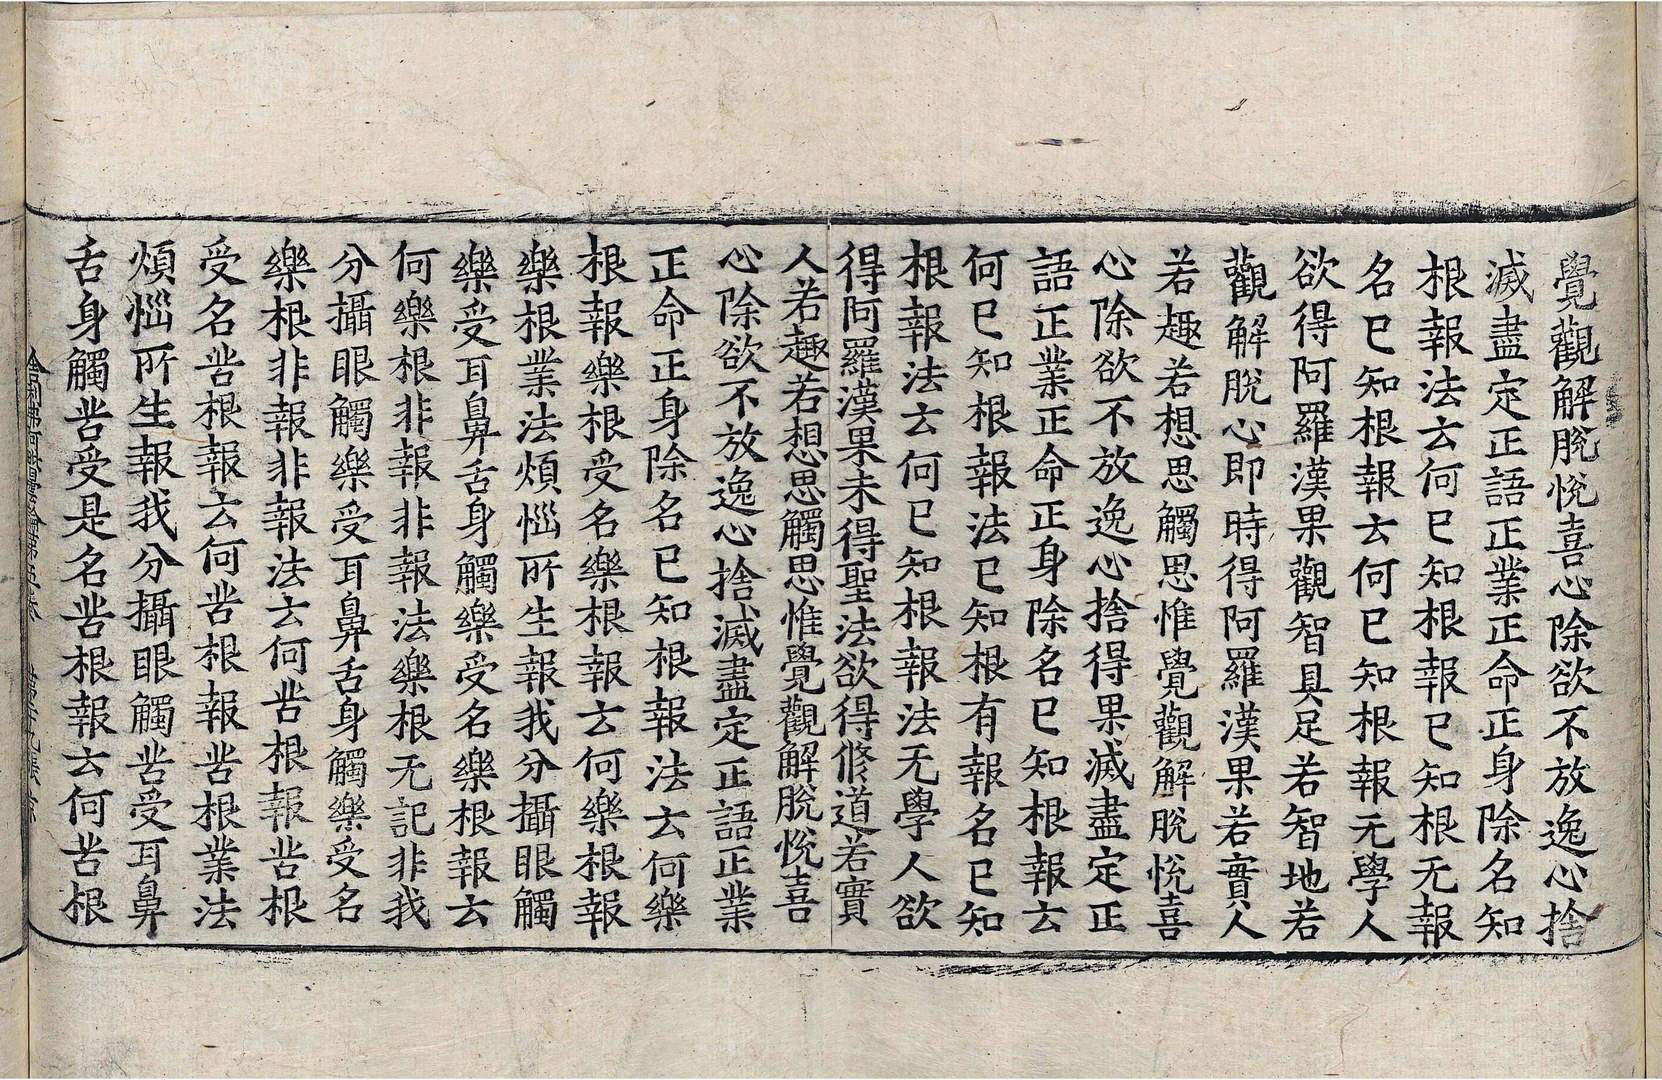 覺觀解脫悅喜心除欲不放逸心捨
滅盡定正語正業正命正身除名知
根報法云何巳知根報巳知根无報
名巳知根報云何巳知根報无學人
欲得阿羅漢果觀智具足若智地若
觀解脫心即時得阿羅漢果若實人
若趣若想思觸思惟覺觀解脫悅喜
心除欲不放逸心捨得果滅盡定正
語正業正命正身除名巳知根報云
何巳知根報法巳知根有報名巳知
根報法云何巳知根報法无學人欲
得阿羅漢果未得聖法欲得修道若實
人若趣若想思觸思惟覺觀解脫悅喜
心除欲不放逸心捨滅盡定正語正業
正命正身除名巳知根報法云何樂
根報樂根受名樂根報云何樂根報
樂根業法煩惱所生報我分攝眼觸
樂受耳鼻舌身觸樂受名樂根報云
何樂根非報非報法樂根无記非我
分攝眼觸樂受耳鼻舌身觸樂受名
樂根非報非報法云何苦根報苦根
受名苦根報云何苦根報苦根業法
煩惱所生報我分攝眼觸苦受耳鼻
舌身觸苦受是名苦根報云何苦根
舍利弗阿毗曇論第五卷